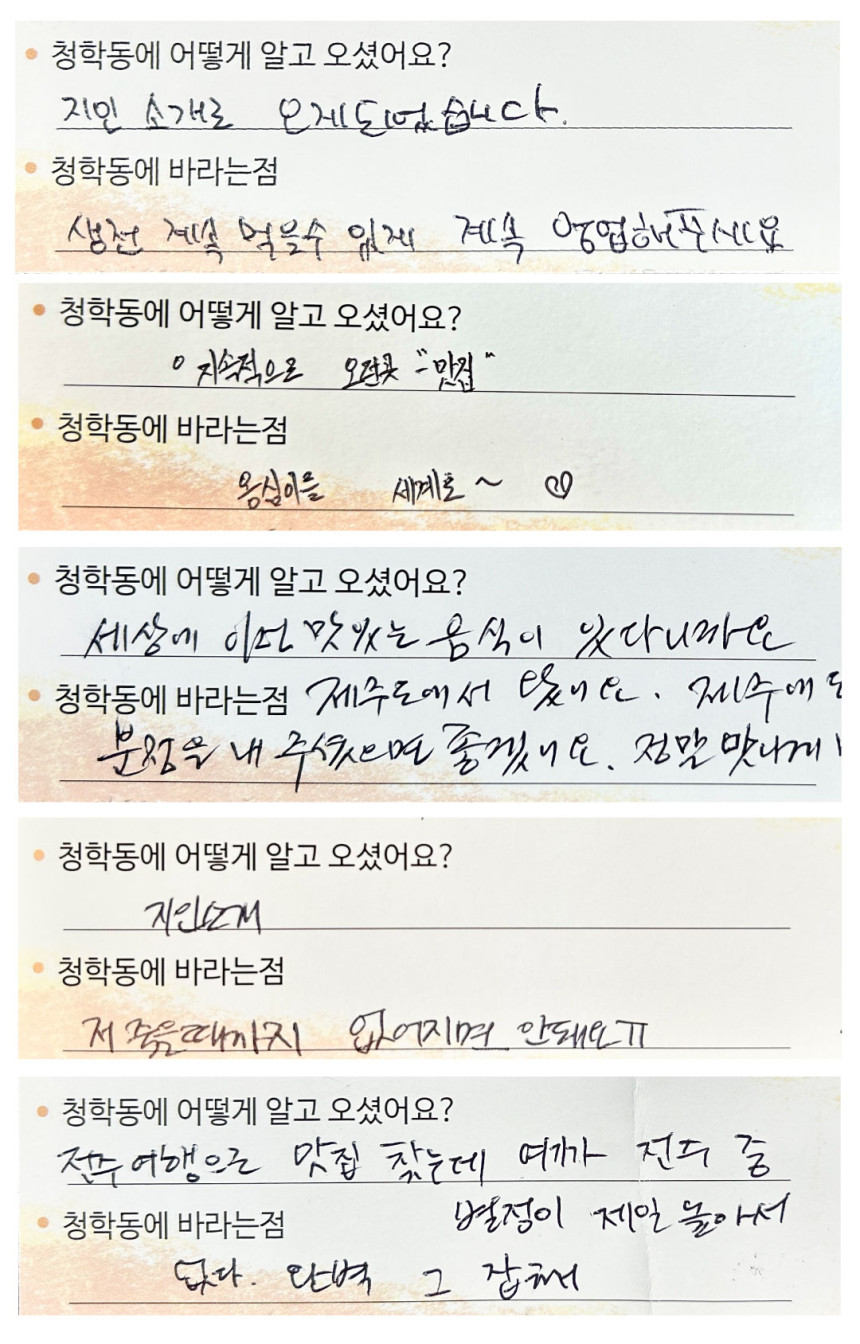 청학동에 어떻게 알고 오셨어요?
지인 소개로 오게되었습니다.
청학동에 바라는점
생전 계속 먹을수 있게 계속 영업해주세요
청학동에 어떻게 알고 오셨어요?
지속적으로 오던곳 "맛집"
청학동에 바라는점
옹심이를 세계로~ ♡
청학동에 어떻게 알고 오셨어요?
세상에 이런 맛있는 음식이 있다니까요
청학동에 바라는점 제주도에서 왔어요. 제주에도
분점을 내 주셨으면 좋겠어요. 정말 맛나게
청학동에 어떻게 알고 오셨어요?
지인소개
청학동에 바라는점
저 죽을때까지 없어지면 안돼요ㅠ
청학동에 어떻게 알고 오셨어요?
전주여행으로 맛집 찾는데 여기가 전주 중
별점이 제일 높아서
청학동에 바라는점
없다. 완벽 그 잡채